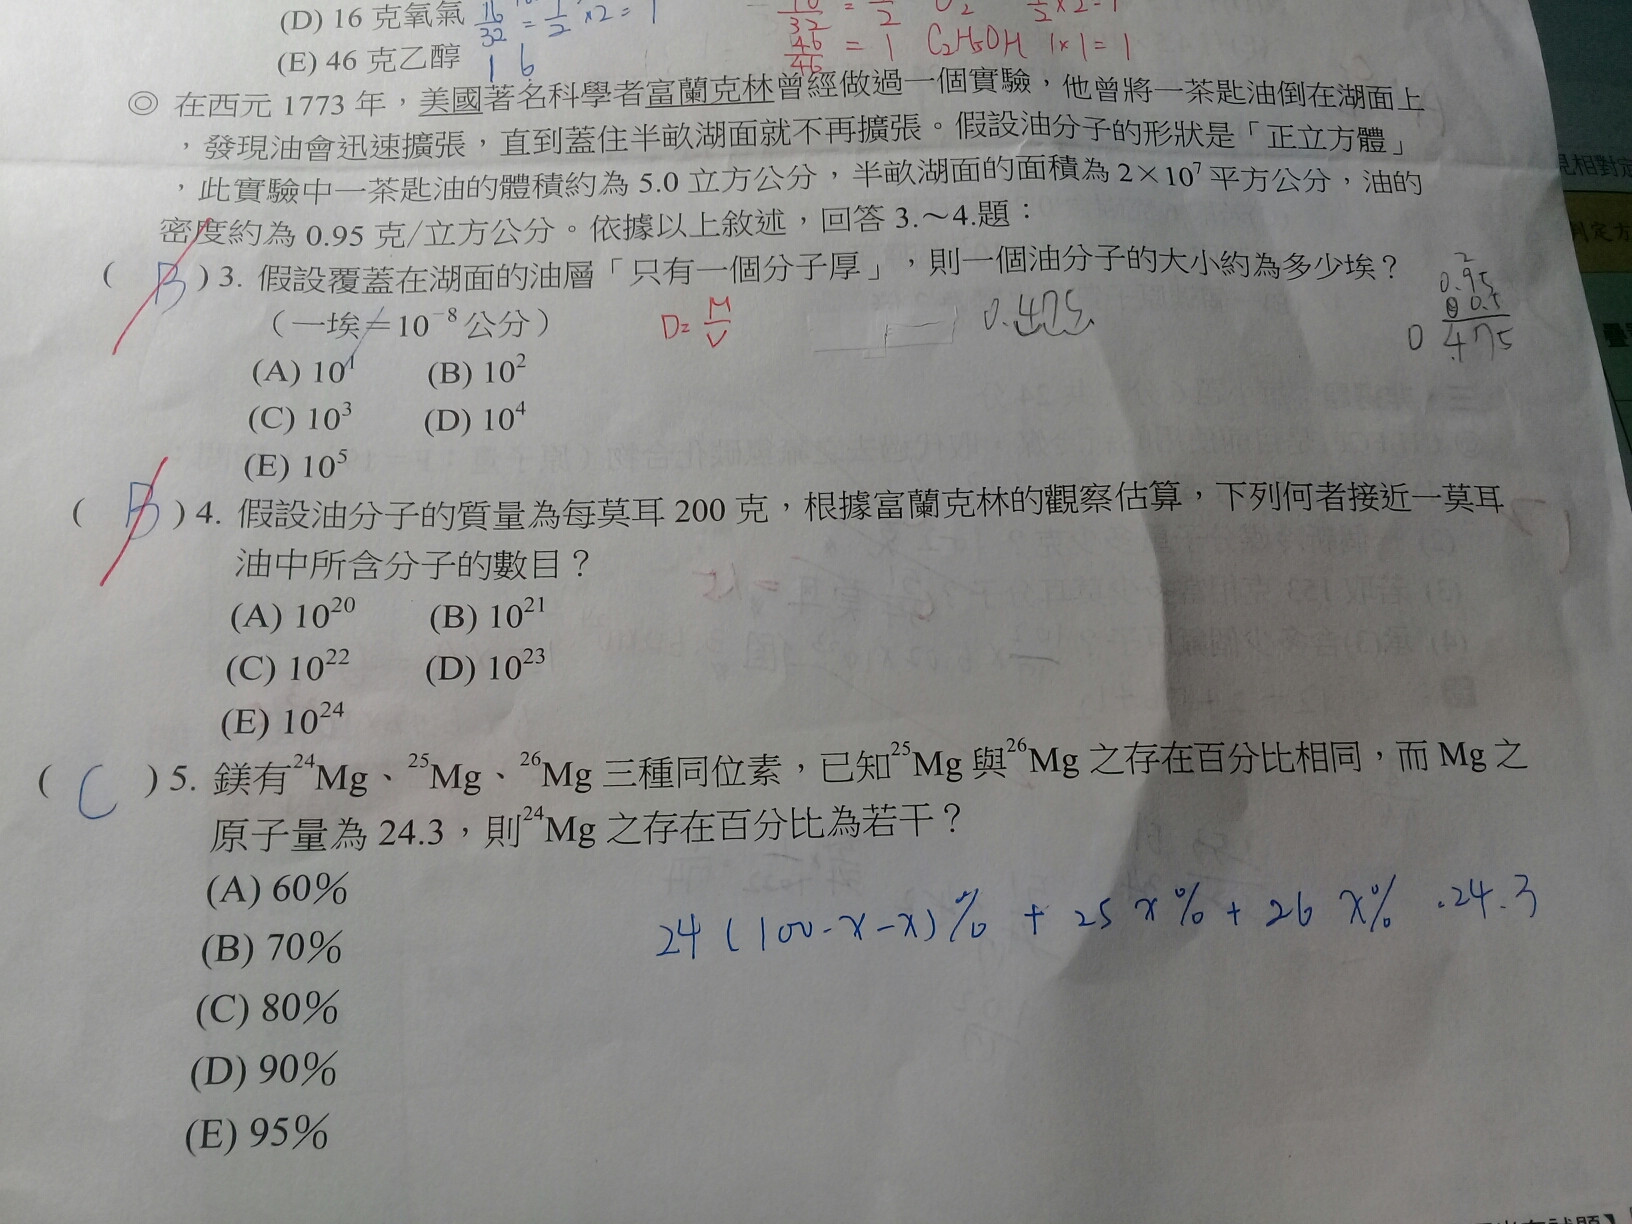 (D) 16 克氧氣 16/32 = 1/2 ×2 = 1 16/32 = 1/2 O2 1/2×2=1
(E) 46 克乙醇 16 46/46 = 1 C2H5OH 1×1=1
◎ 在西元 1773 年，美國著名科學者富蘭克林曾經做過一個實驗，他曾將一茶匙油倒在湖面上
，發現油會迅速擴張，直到蓋住半畝湖面就不再擴張。假設油分子的形狀是「正立方體」
，此實驗中一茶匙油的體積約為 5.0 立方公分，半畝湖面的面積為 2×10⁷ 平方公分，油的
密度約為 0.95 克/立方公分。依據以上敘述，回答 3.～4.題：
( B ) 3. 假設覆蓋在湖面的油層「只有一個分子厚」，則一個油分子的大小約為多少埃？
（一埃＝10⁻⁸ 公分） D= M/V 0.475
0.95
0.5
0 475
(A) 10¹ (B) 10²
(C) 10³ (D) 10⁴
(E) 10⁵
( B ) 4. 假設油分子的質量為每莫耳 200 克，根據富蘭克林的觀察估算，下列何者接近一莫耳
油中所含分子的數目？
(A) 10²⁰ (B) 10²¹
(C) 10²² (D) 10²³
(E) 10²⁴
( C ) 5. 鎂有²⁴Mg、²⁵Mg、²⁶Mg 三種同位素，已知²⁵Mg 與²⁶Mg 之存在百分比相同，而 Mg 之
原子量為 24.3，則²⁴Mg 之存在百分比為若干？
(A) 60%
24 (100-x-x)% + 25 x% + 26 x% .24.3
(B) 70%
(C) 80%
(D) 90%
(E) 95%